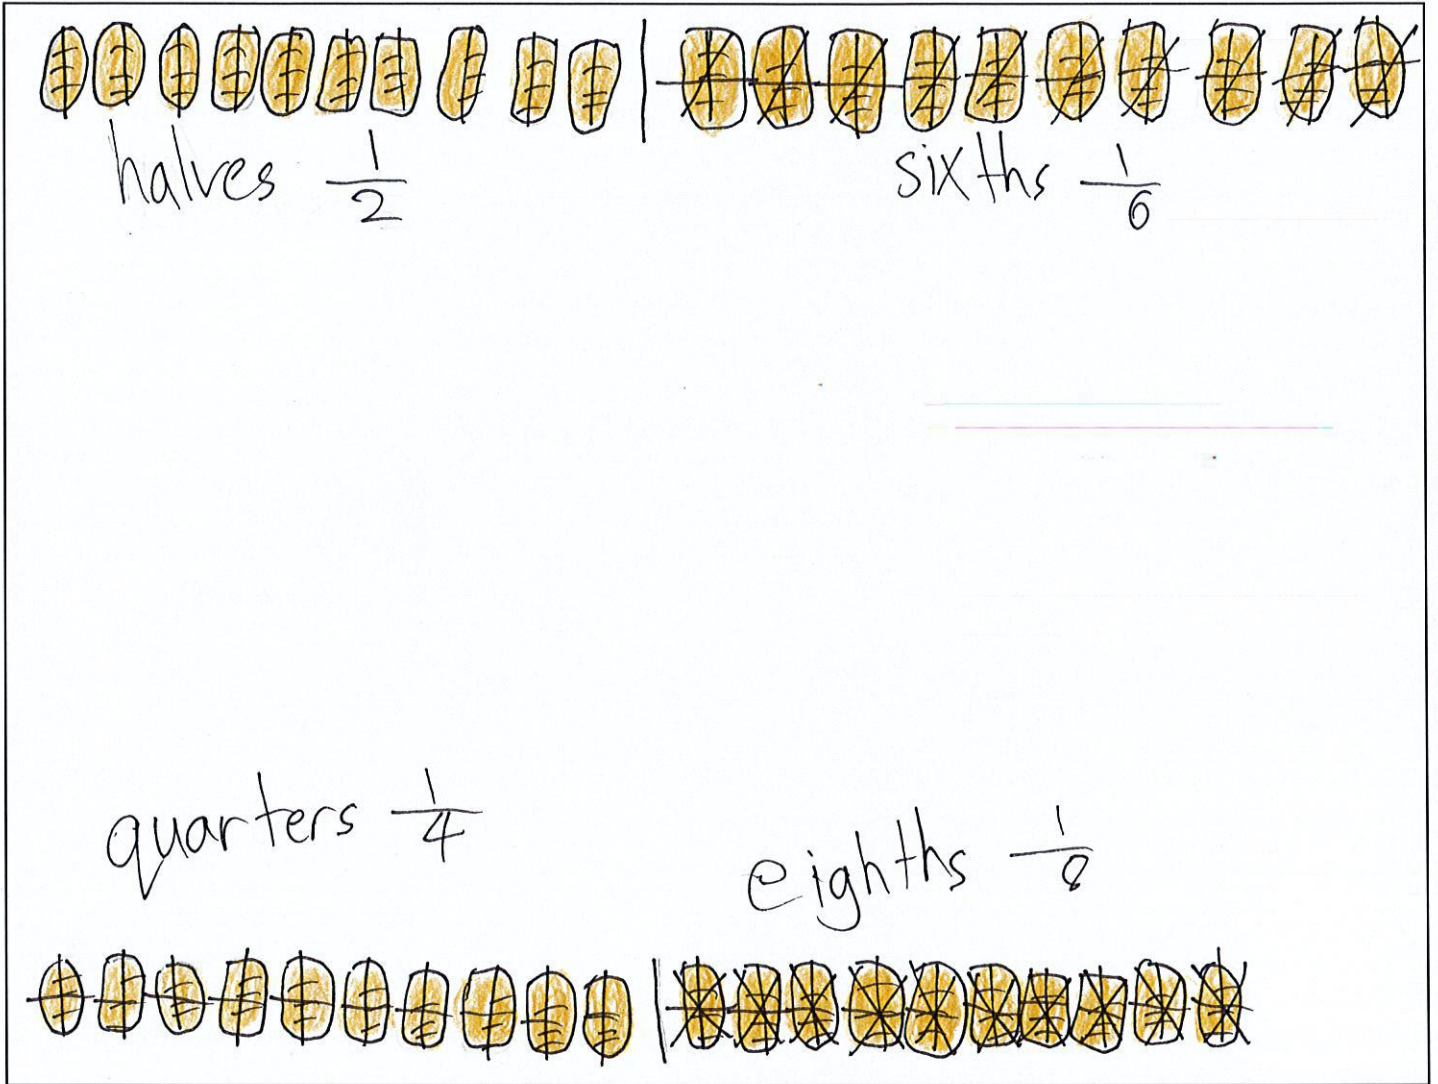 halves 1/2
sixths 1/6
quarters 1/4
eighths 1/8